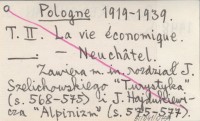 Pologne 1919-1939.
T. II. La vie économique.
—— : — Neuchâtel.
Zawiera m. in. rozdział J.
Szelichowskiego "Turystyka"
(s. 568-575) i J. Hajdukiewi-
cza "Alpinizm" (s. 575-577).